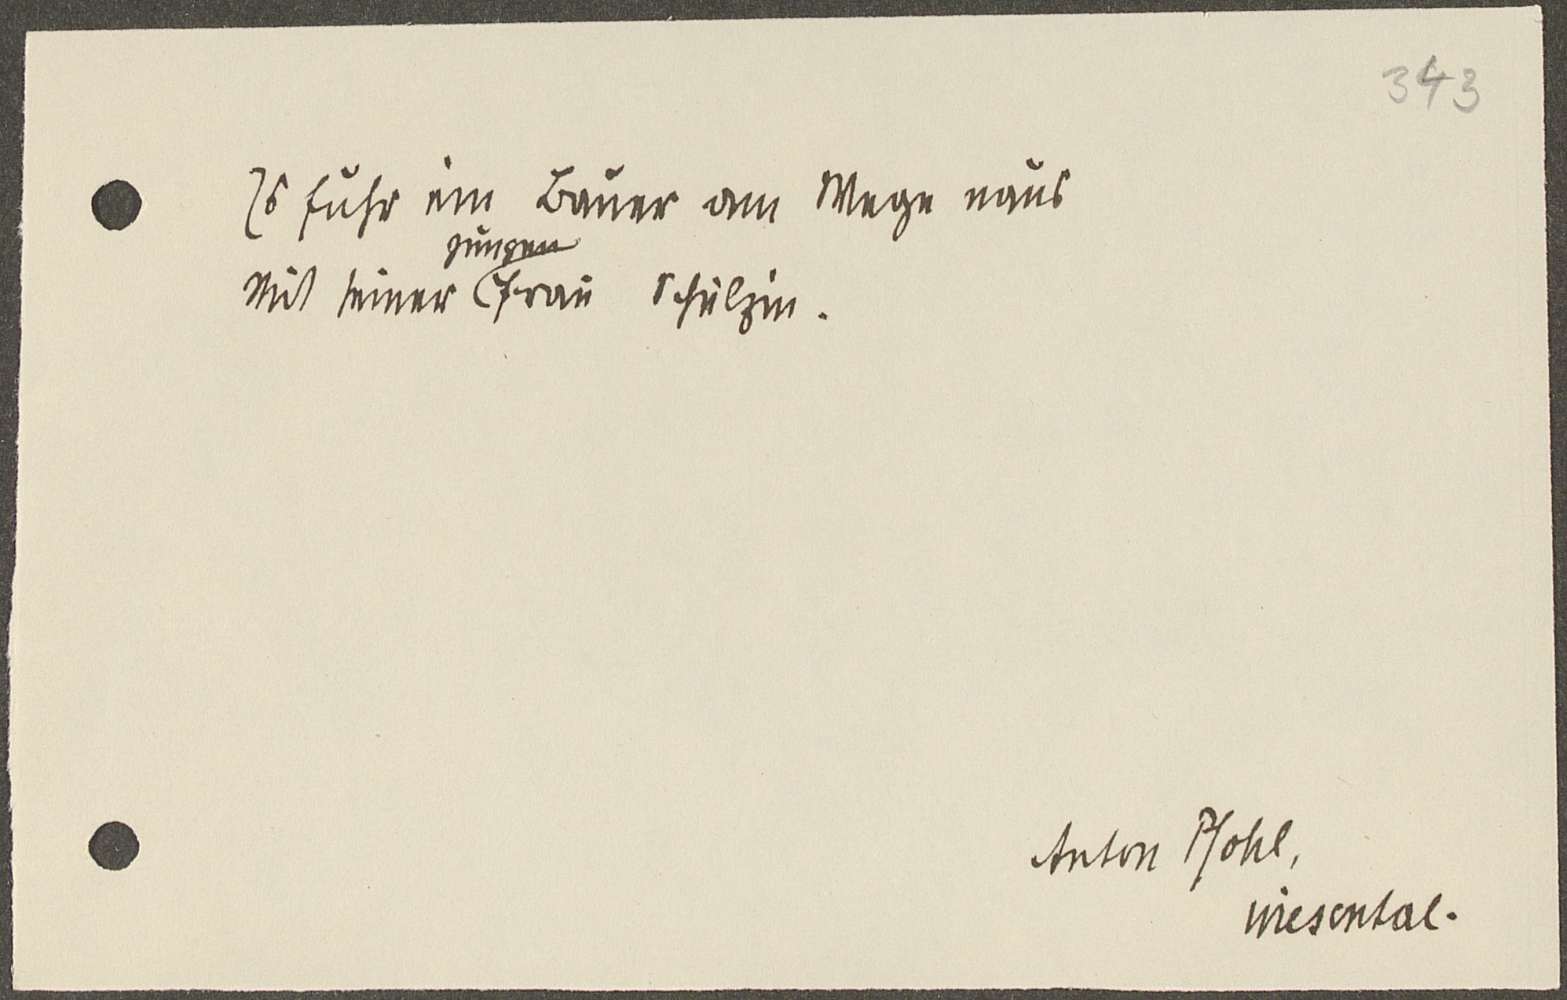 343
Es fuhr ein Bauer am Wege naus
jungen
Mit seiner Frau Schulzin.
Anton Pfohl,
Wiesental.